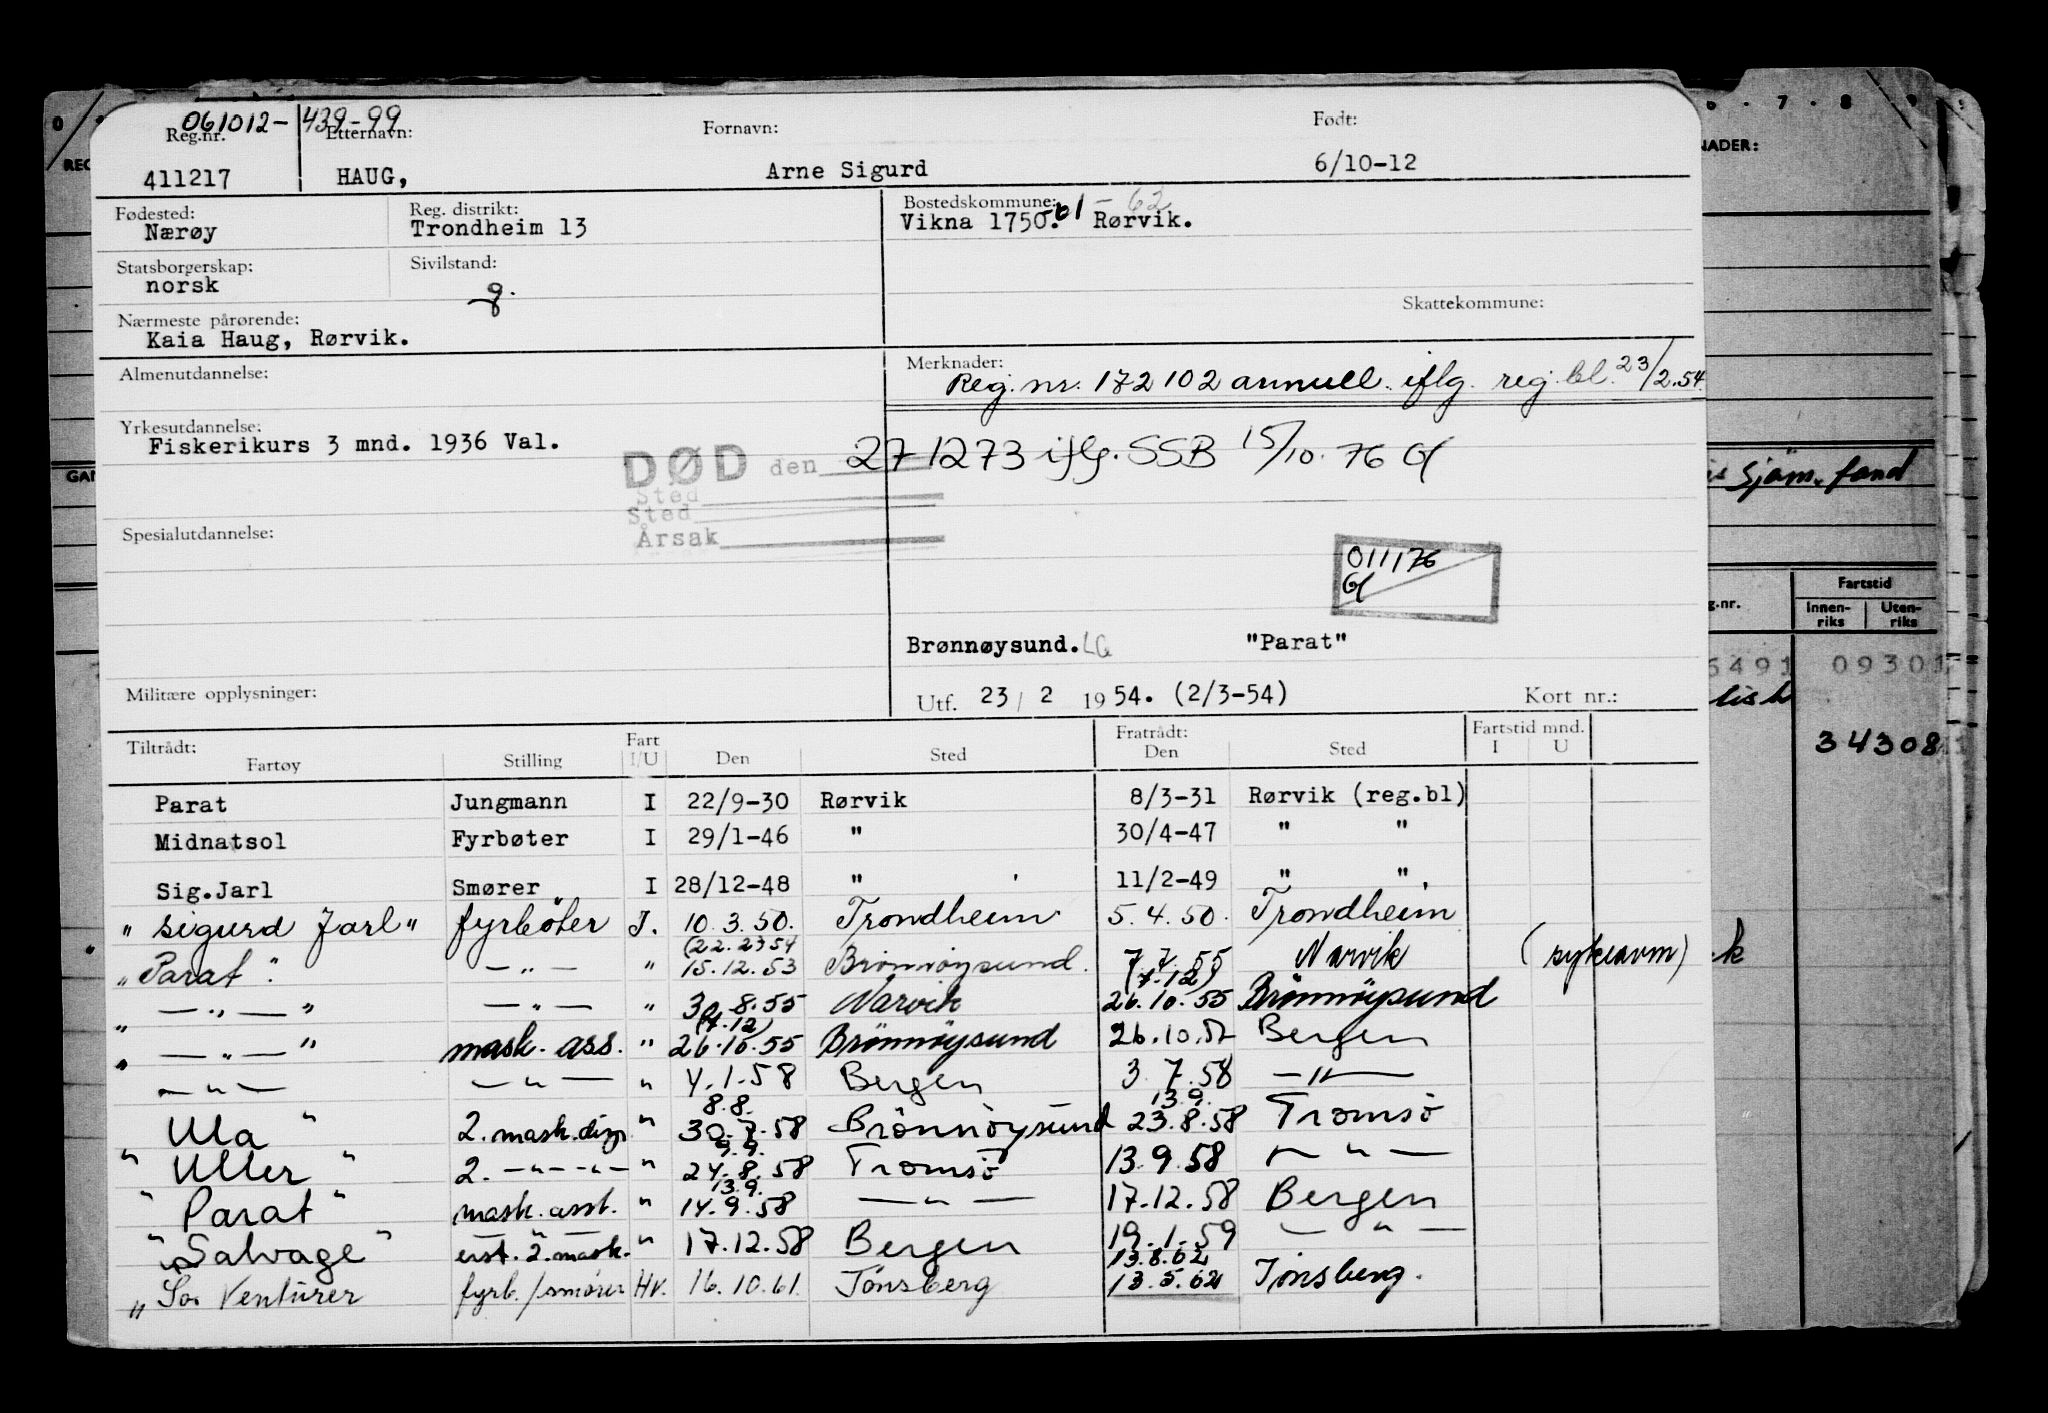 061012-43999
Reg.nr. Etternavn: Fornavn: Født:
411217 HAUG, Arne Sigurd 6/10-12
Fødested: Reg. distrikt: Bostedskommune:
Nærøy Trondheim 13 Vikna 1750.-61-62 Rørvik.
Statsborgerskap: Sivilstand:
norsk g.
Skattekommune:
Nærmeste pårørende:
Kaia Haug, Rørvik.
Almenutdannelse: Merknader:
Reg. nr. 172102 annull. iflg. reg. bl. 23/2.54.
Yrkesutdannelse:
Fiskerikurs 3 mnd. 1936 Val.
DØD den 271273 iflg. SSB 15/10.76
Sted
Sted
Årsak
Spesialutdannelse:
011176
Brønnøysund. LG "Parat"
Militære opplysninger:
Utf. 23 / 2 1954. (2/3-54) Kort nr.:
Tiltrådt: Fart Fratrådt: Fartstid mnd.
Fartøy Stilling I/U Den Sted Den Sted I U
Parat Jungmann I 22/9-30 Rørvik 8/3-31 Rørvik (reg.bl)
Midnatsol Fyrbøter I 29/1-46 " 30/4-47 " "
Sig.Jarl Smører I 28/12-48 " 11/2-49 " "
"Sigurd Jarl" fyrbøter I. 10.3.50. Trondheim 5.4.50. Trondheim
(22.2354
"Parat". — " — " 15.12.53 Brønnøysund. 7.7.55 Narvik (sykeavm)
(7.12)
" — " — " — " — " 30.8.55 Narvik 26.10.55 Brönnöysund
(7.12)
" — " — " mask. ass. " 26.10.55 Brönnöysund 26.10.57 Bergen
— " — — " — " 4.1.58 Bergen 3.7.58 — " —
8.8. 13.9.
Ula " 2. mask. disp " 30.7.58 Brönnöysund 23.8.58 Tromsö
9.9.
" Uller " 2. — " — " — " 24.8.58 Tromsö 13.9.58 — " —
13.9.
" Parat " mask. asst. " 14.9.58 — " — 17.12.58 Bergen
" Salvage " erst. 2. mask. " 17.12.58 Bergen 19.1.59 — " —
13.8.62
" Sos Venturer fyrb./smører Hv. 16.10.61 Tønsberg 13.5.62 Tønsberg.
7 8 9
NADER:
REG
GAN
Sjøm. fond
Fartstid
g.nr. Innen-riks Uten-riks
6491 09301
34308